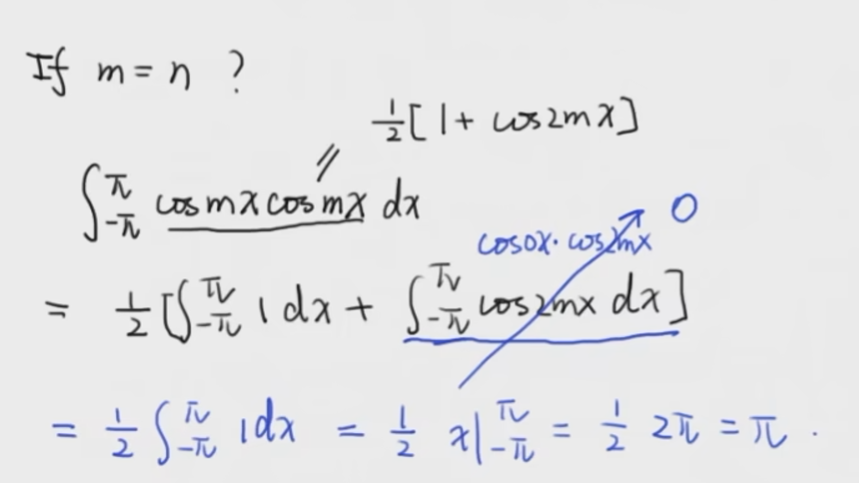 If m = n ?
1/2 [1 + cos2mx]
∫_{-π}^{π} cos mx cos mx dx
cos0x · cos2mx 0
= 1/2 [∫_{-π}^{π} 1 dx + ∫_{-π}^{π} cos2mx dx]
= 1/2 ∫_{-π}^{π} 1 dx = 1/2 x|_{-π}^{π} = 1/2 2π = π .